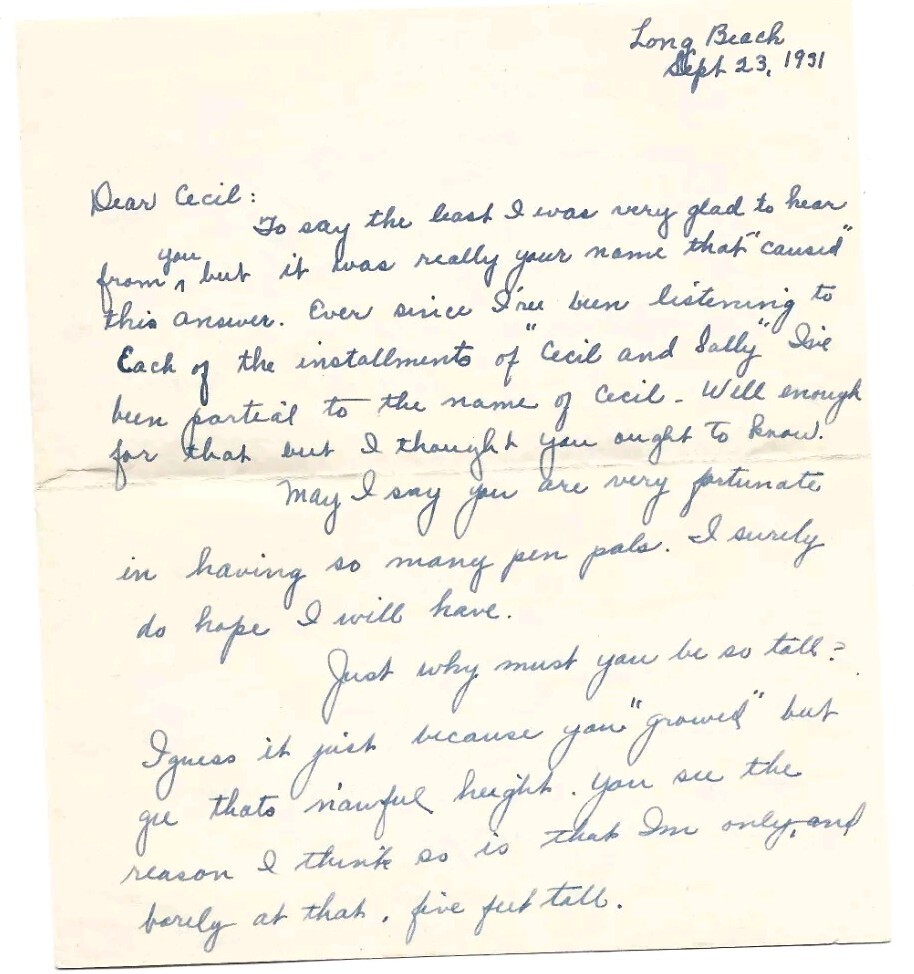 Long Beach
Sept 23, 1931
Dear Cecil:
To say the least I was very glad to hear
you
from ^ but it was really your name that "caused"
this answer. Ever since I've been listening to
Each of the installments of "Cecil and Sally" I've
been partial to the name of Cecil - Well enough
for that but I thought you ought to know.
May I say you are very fortunate
in having so many pen pals. I surely
do hope I will have.
Just why must you be so tall?
I guess it just because you "growed" but
gee thats n'awful height. You see the
reason I think so is that Im only, and
barely at that, five feet tall.